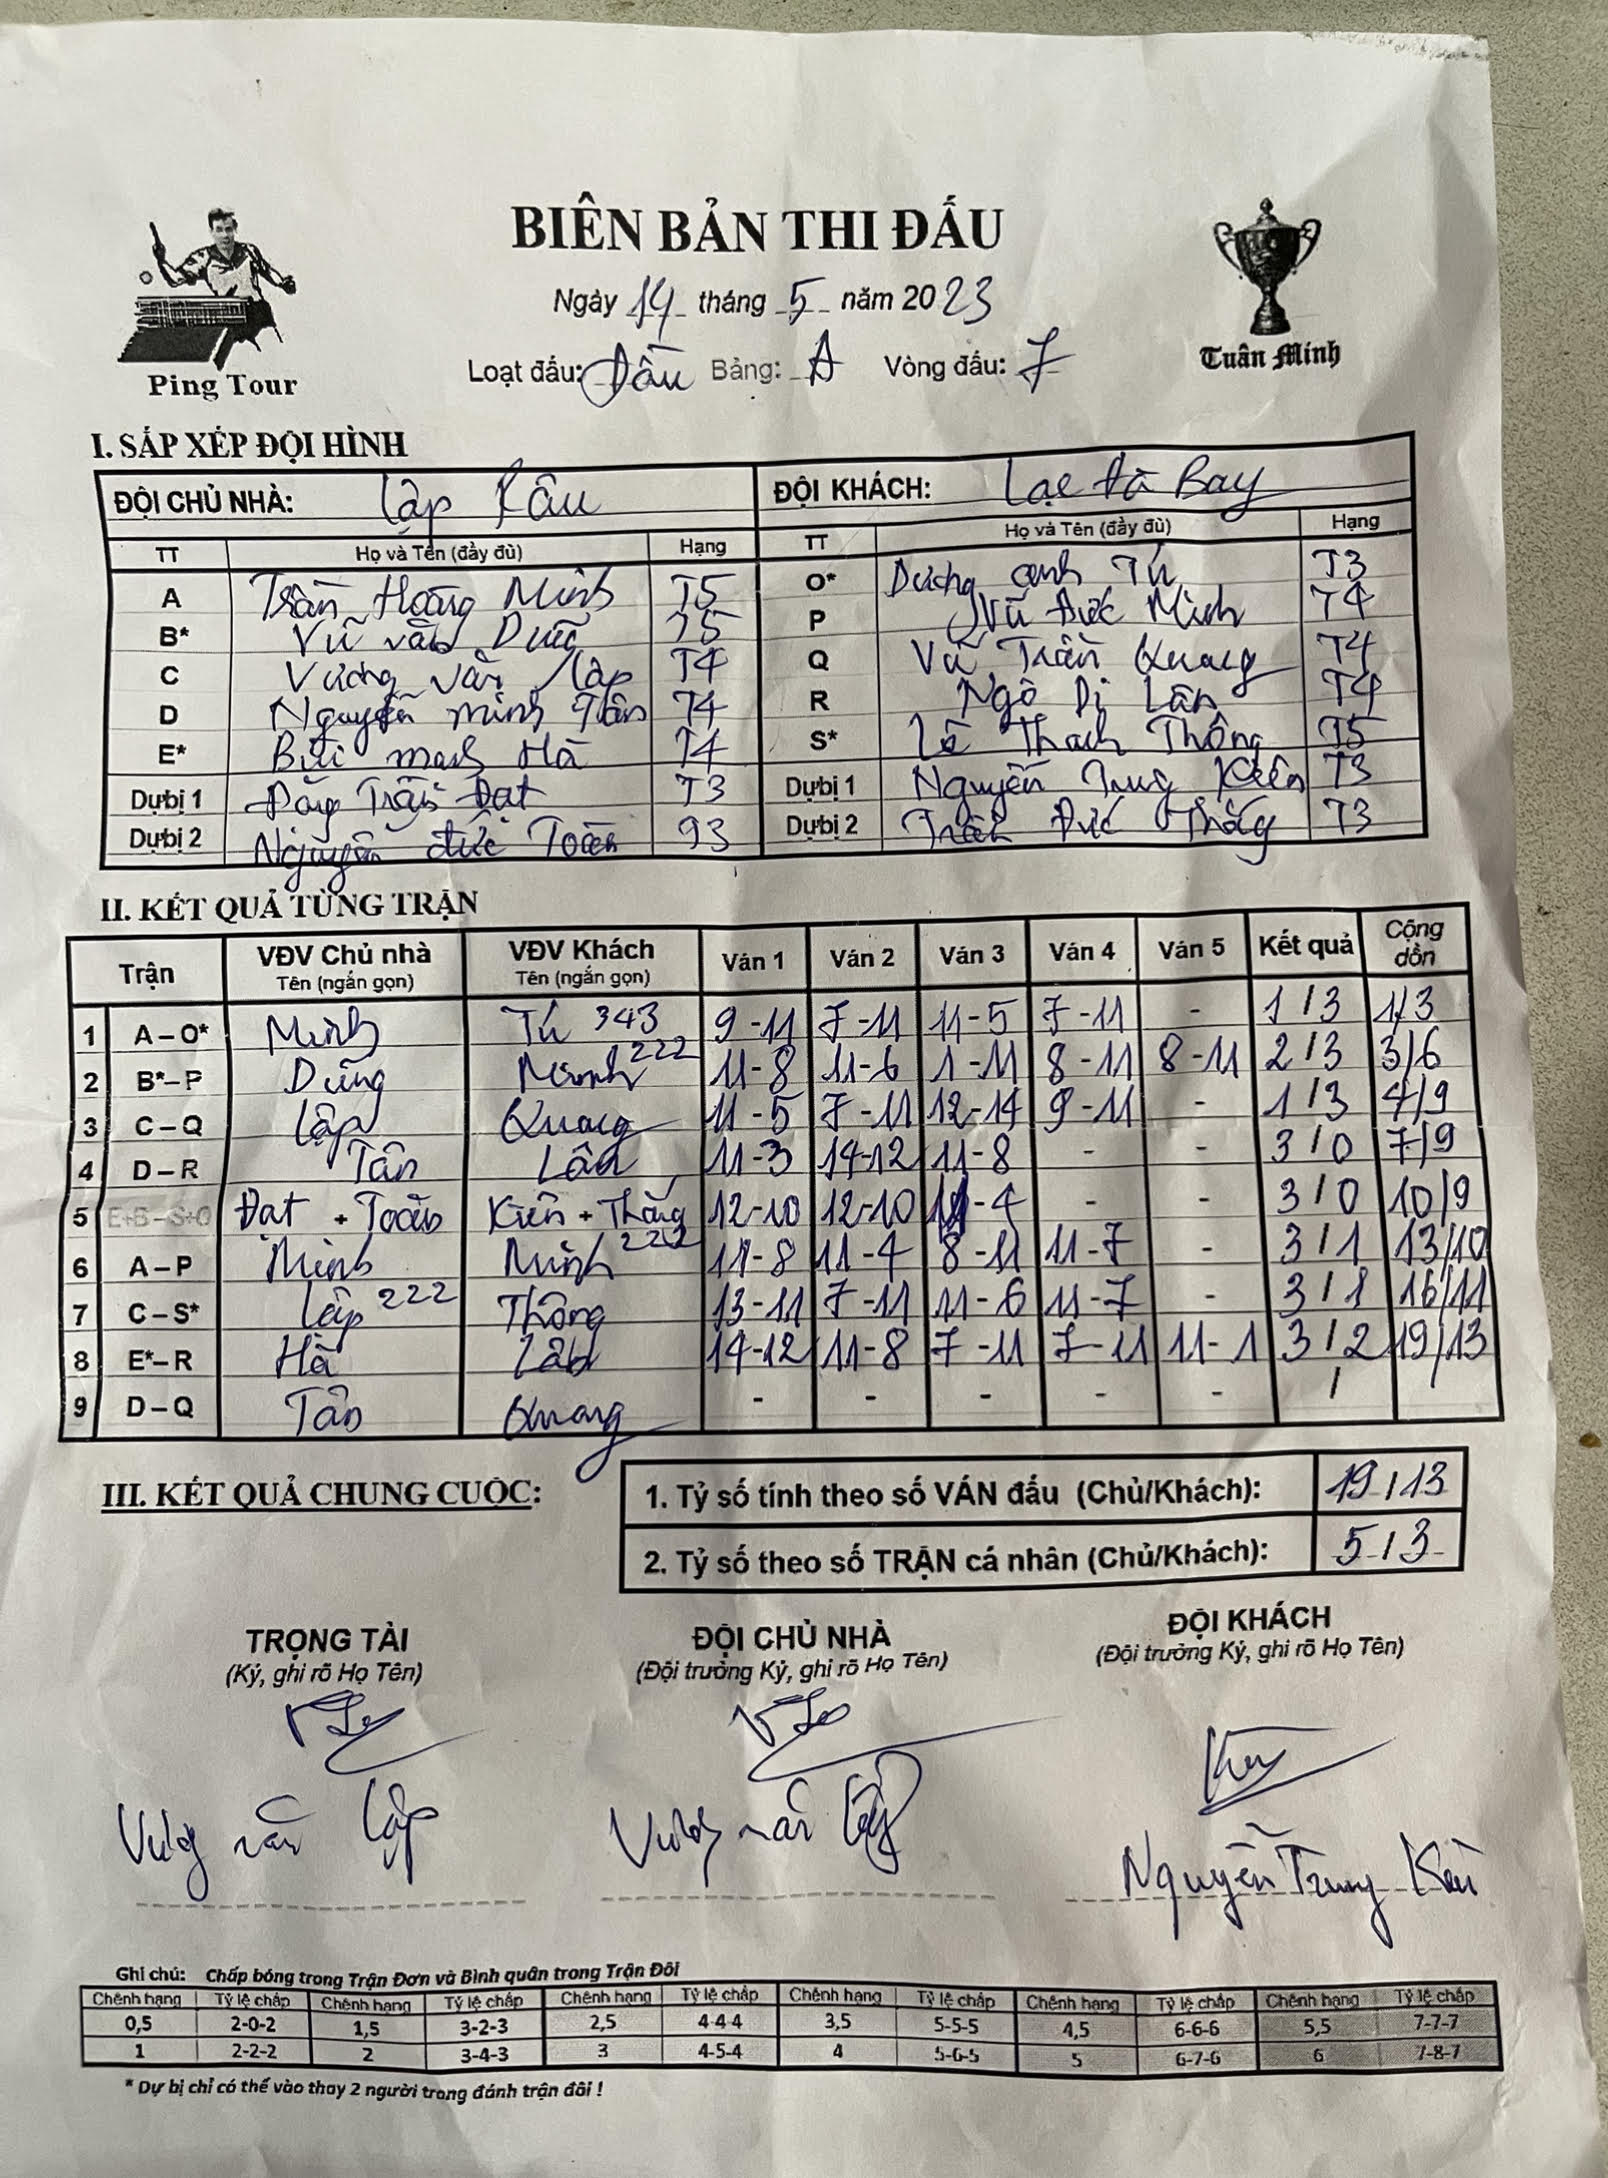 BIÊN BẢN THI ĐẤU
Ngày 14 tháng 5 năm 2023
Ping Tour
Loạt đấu: Đầu Bảng: A Vòng đấu: 7
Tuân Minh
I. SẮP XẾP ĐỘI HÌNH
ĐỘI CHỦ NHÀ: Lập Râu ĐỘI KHÁCH: Lạc Đà Bay
TT Họ và Tên (đầy đủ) Hạng TT Họ và Tên (đầy đủ) Hạng
A Trần Hoàng Minh T5 O* Dương Anh Tú T3
B* Vũ Văn Dũng T5 P Vũ Đức Minh T4
C Vương Văn Lập T4 Q Vũ Trần Quang T4
D Nguyễn Minh Tân T4 R Ngô Di Lân T4
E* Bùi Mạnh Hà T4 S* Lê Thạch Thông T5
Dự bị 1 Đặng Trần Đạt T3 Dự bị 1 Nguyễn Trung Kiên T3
Dự bị 2 Nguyễn Đức Toàn 93 Dự bị 2 Trần Đức Thắng T3
II. KẾT QUẢ TỪNG TRẬN
Trận VĐV Chủ nhà Tên (ngắn gọn) VĐV Khách Tên (ngắn gọn) Ván 1 Ván 2 Ván 3 Ván 4 Ván 5 Kết quả Cộng dồn
1 A – O* Minh Tú 343 9-11 7-11 11-5 7-11 - 1/3 1/3
2 B* – P Dũng Minh 222 11-8 11-6 1-11 8-11 8-11 2/3 3/6
3 C – Q Lập Quang 11-5 7-11 12-14 9-11 - 1/3 4/9
4 D – R Tân Lân 11-3 14-12 11-8 - - 3/0 7/9
5 E+B – S+O Đạt + Toàn Kiên + Thắng 12-10 12-10 11-4 - - 3/0 10/9
6 A – P Minh Minh 222 11-8 11-4 8-11 11-7 - 3/1 13/10
7 C – S* Lập 222 Thông 13-11 7-11 11-6 11-7 - 3/1 16/11
8 E* – R Hà Lân 14-12 11-8 7-11 7-11 11-1 3/2 19/13
9 D – Q Tân Quang - - - - - /
III. KẾT QUẢ CHUNG CUỘC:
1. Tỷ số tính theo số VÁN đấu (Chủ/Khách): 19/13
2. Tỷ số theo số TRẬN cá nhân (Chủ/Khách): 5/3
TRỌNG TÀI ĐỘI CHỦ NHÀ ĐỘI KHÁCH
(Ký, ghi rõ Họ Tên) (Đội trưởng Ký, ghi rõ Họ Tên) (Đội trưởng Ký, ghi rõ Họ Tên)
Vương Văn Lập Vương Văn Lập Nguyễn Trung Kiên
Ghi chú: Chấp bóng trong Trận Đơn và Bình quân trong Trận Đôi
Chênh hạng Tỷ lệ chấp Chênh hạng Tỷ lệ chấp Chênh hạng Tỷ lệ chấp Chênh hạng Tỷ lệ chấp Chênh hạng Tỷ lệ chấp Chênh hạng Tỷ lệ chấp
0,5 2-0-2 1,5 3-2-3 2,5 4-4-4 3,5 5-5-5 4,5 6-6-6 5,5 7-7-7
1 2-2-2 2 3-4-3 3 4-5-4 4 5-6-5 5 6-7-6 6 7-8-7
* Dự bị chỉ có thể vào thay 2 người trong đánh trận đôi !